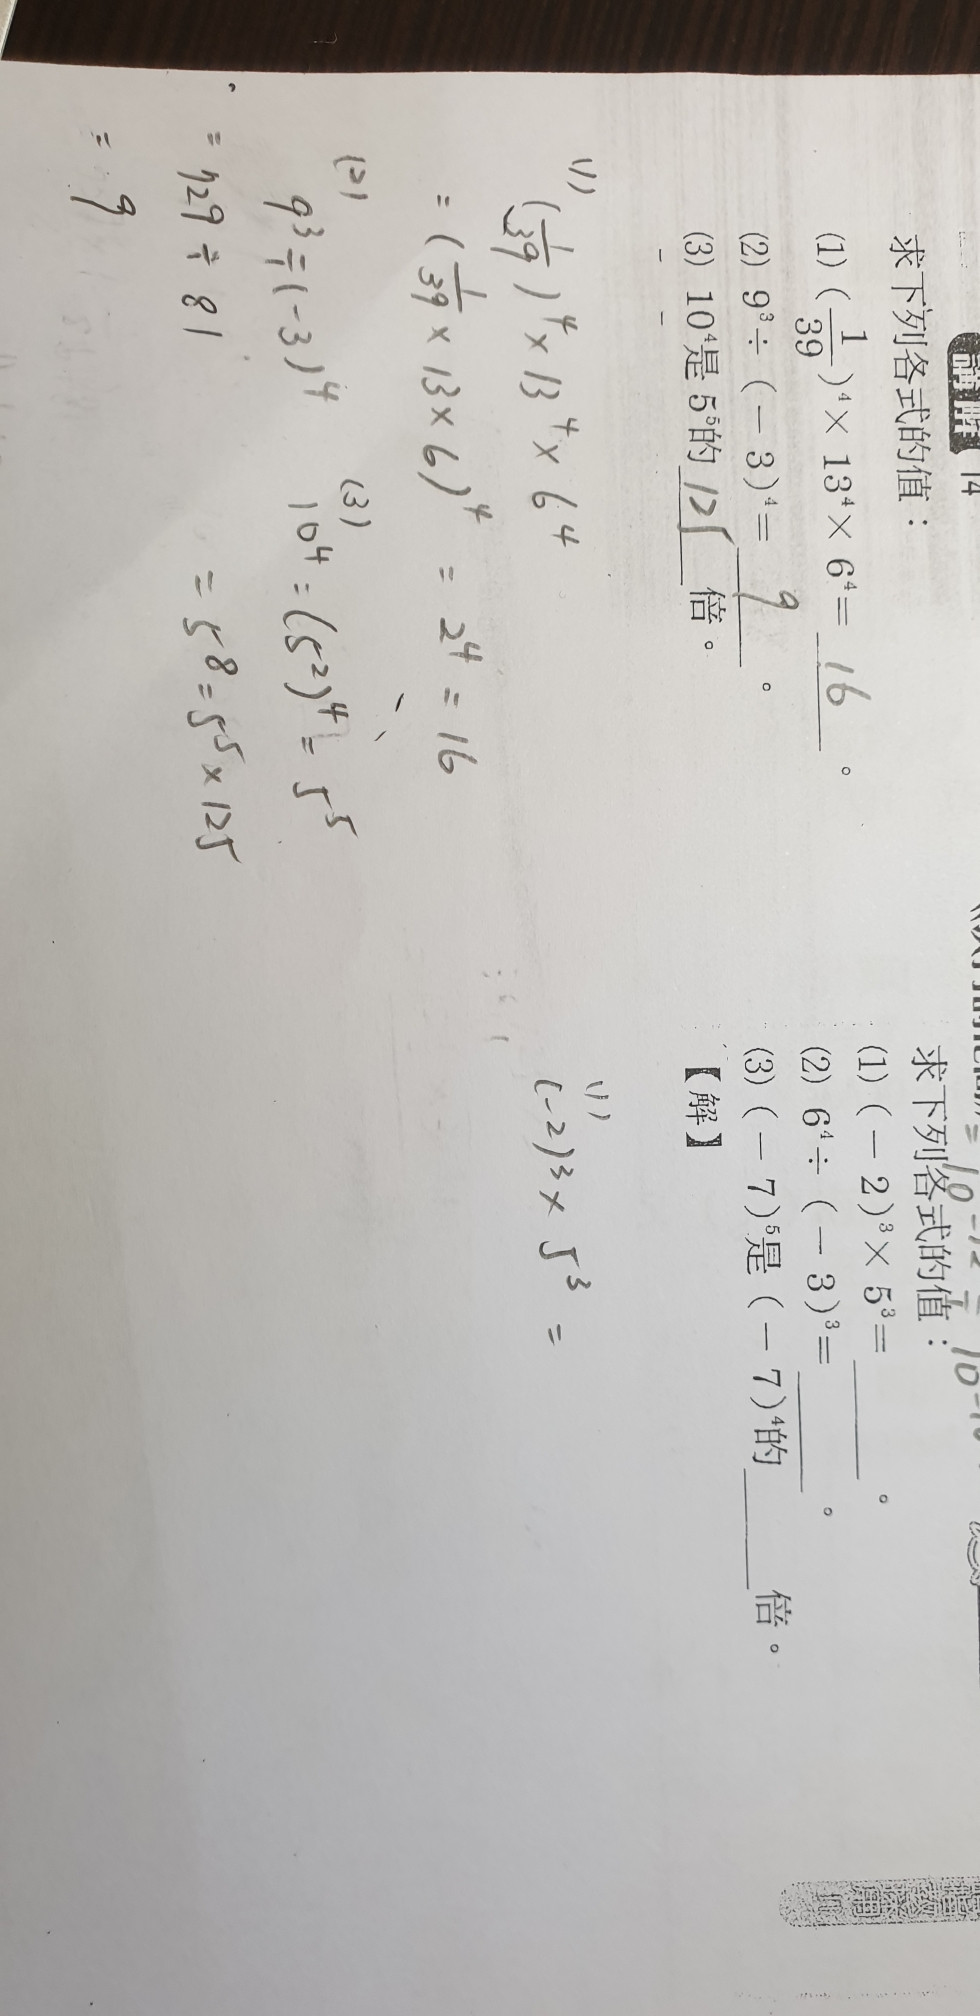 14
求下列各式的值：
(1) (1/39)⁴×13⁴×6⁴= 16 。
(2) 9³÷(－3)⁴= 9 。
(3) 10⁴是5⁵的 125 倍。
(1)
(1/39)⁴×13⁴×6⁴
=(1/39×13×6)⁴ = 2⁴ = 16
(2)
9³÷(-3)⁴
= 729÷81
= 9
(3)
10⁴=(5²)⁴=5⁵
=5⁸=5⁵×125
求下列各式的值：
(1) (－2)³×5³= 。
(2) 6⁴÷(－3)³= 。
(3) (－7)⁵是(－7)⁴的 倍。
【解】
(1)
(-2)³×5³ =